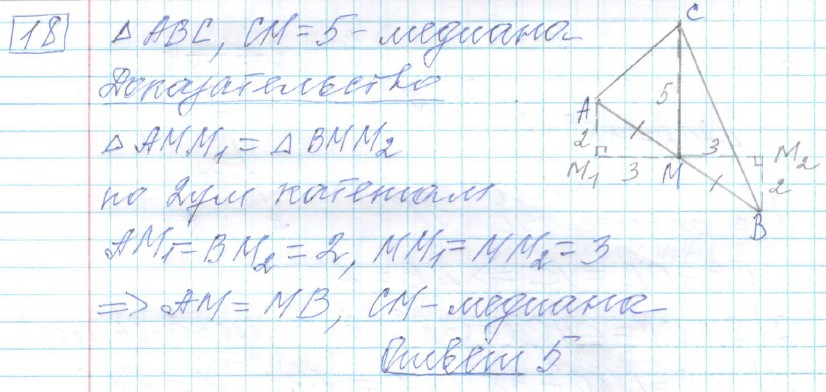 18 △ ABC, CM = 5 - медиана
Доказательство
△ AMM₁ = △ BMM₂
по 2ум катетам
AM₁ = BM₂ = 2, MM₁ = MM₂ = 3
=> AM = MB, CM - медиана
Ответ 5
C
5
A
2
3
M₂
M₁
3
M
2
B